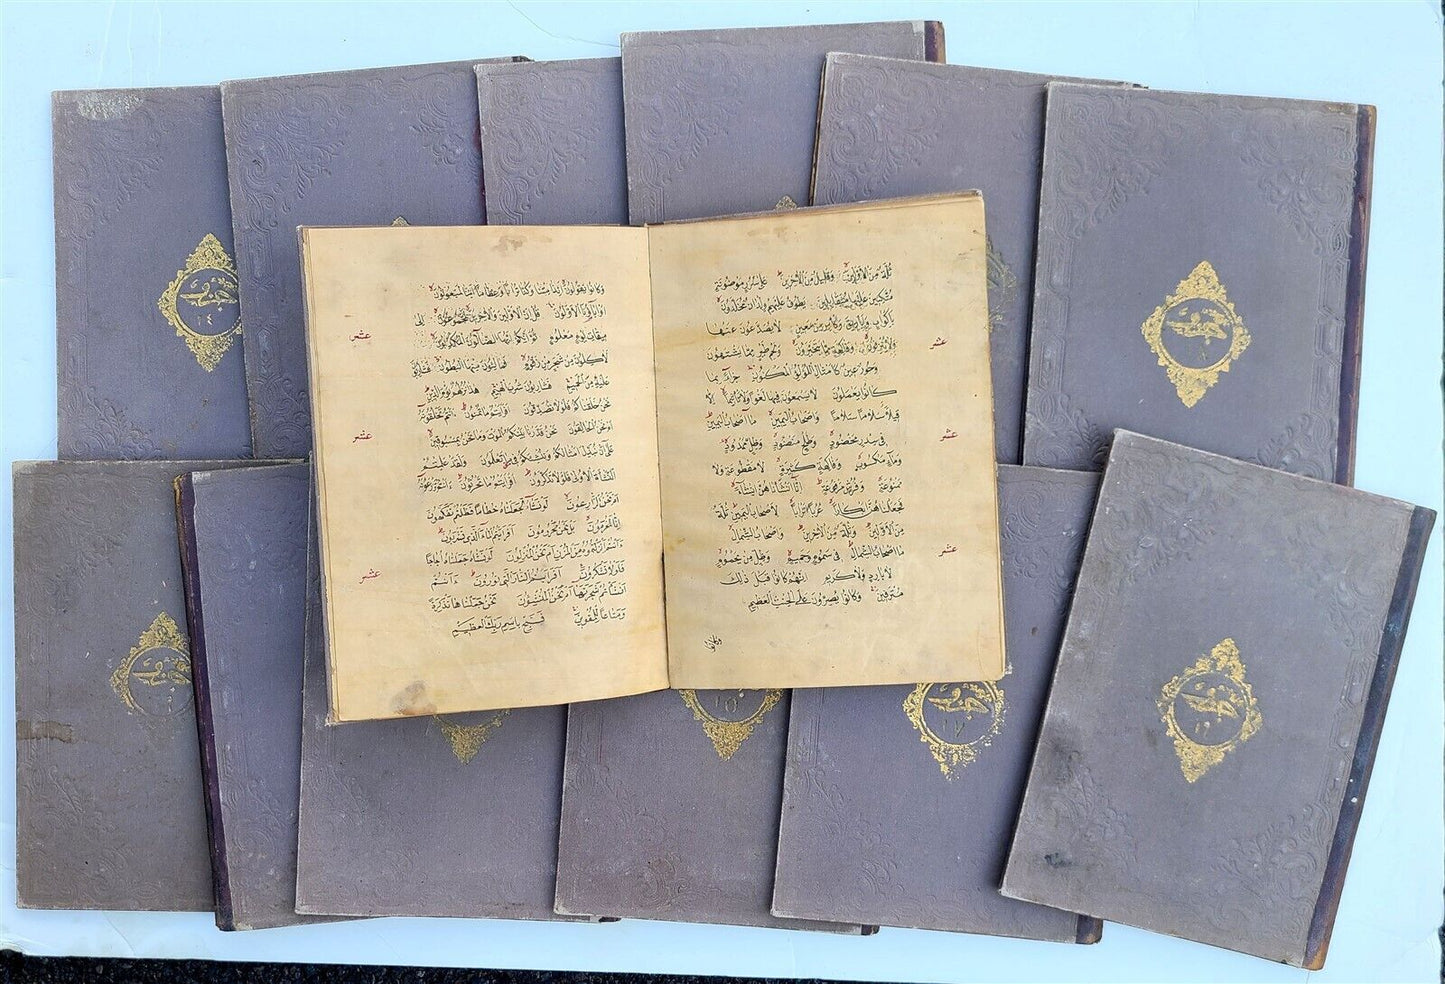 ثُلَّةٌ مِنَ الْاَوَّلِينَ وَقَلِيلٌ مِنَ الْاٰخِرِينَ عَلٰى سُرُرٍ مَوْضُونَةٍ
مُتَّكِئِينَ عَلَيْهَا مُتَقَابِلِينَ يَطُوفُ عَلَيْهِمْ وِلْدَانٌ مُخَلَّدُونَ
بِاَكْوَابٍ وَاَبَارِيقَ وَكَأْسٍ مِنْ مَعِينٍ لَا يُصَدَّعُونَ عَنْهَا
وَلَا يُنْزِفُونَ وَفَاكِهَةٍ مِمَّا يَتَخَيَّرُونَ وَلَحْمِ طَيْرٍ مِمَّا يَشْتَهُونَ
عشر
وَحُورٌ عِينٌ كَاَمْثَالِ اللُّؤْلُؤِ الْمَكْنُونِ جَزَاءً بِمَا
كَانُوا يَعْمَلُونَ لَا يَسْمَعُونَ فِيهَا لَغْوًا وَلَا تَأْثِيمًا اِلَّا
قِيلًا سَلَامًا سَلَامًا وَاَصْحَابُ الْيَمِينِ مَا اَصْحَابُ الْيَمِينِ
فِي سِدْرٍ مَخْضُودٍ وَطَلْحٍ مَنْضُودٍ وَظِلٍّ مَمْدُودٍ
عشر
وَمَاءٍ مَسْكُوبٍ وَفَاكِهَةٍ كَثِيرَةٍ لَا مَقْطُوعَةٍ وَلَا
مَمْنُوعَةٍ وَفُرُشٍ مَرْفُوعَةٍ اِنَّا اَنْشَأْنَاهُنَّ اِنْشَاءً
فَجَعَلْنَاهُنَّ اَبْكَارًا عُرُبًا اَتْرَابًا لِاَصْحَابِ الْيَمِينِ ثُلَّةٌ
مِنَ الْاَوَّلِينَ وَثُلَّةٌ مِنَ الْاٰخِرِينَ وَاَصْحَابُ الشِّمَالِ
مَا اَصْحَابُ الشِّمَالِ فِي سَمُومٍ وَحَمِيمٍ وَظِلٍّ مِنْ يَحْمُومٍ
عشر
لَا بَارِدٍ وَلَا كَرِيمٍ اِنَّهُمْ كَانُوا قَبْلَ ذٰلِكَ
مُتْرَفِينَ وَكَانُوا يُصِرُّونَ عَلَى الْحِنْثِ الْعَظِيمِ
وكانوا
وَكَانُوا يَقُولُونَ اَئِذَا مِتْنَا وَكُنَّا تُرَابًا وَعِظَامًا ءَاِنَّا لَمَبْعُوثُونَ
اَوَاٰبَاؤُنَا الْاَوَّلُونَ قُلْ اِنَّ الْاَوَّلِينَ وَالْاٰخِرِينَ لَمَجْمُوعُونَ اِلٰى
مِيقَاتِ يَوْمٍ مَعْلُومٍ ثُمَّ اِنَّكُمْ اَيُّهَا الضَّالُّونَ الْمُكَذِّبُونَ
عشر
لَاٰكِلُونَ مِنْ شَجَرٍ مِنْ زَقُّومٍ فَمَالِئُونَ مِنْهَا الْبُطُونَ فَشَارِبُونَ
عَلَيْهِ مِنَ الْحَمِيمِ فَشَارِبُونَ شُرْبَ الْهِيمِ هٰذَا نُزُلُهُمْ يَوْمَ الدِّينِ
نَحْنُ خَلَقْنَاكُمْ فَلَوْلَا تُصَدِّقُونَ اَفَرَاَيْتُمْ مَا تُمْنُونَ ءَاَنْتُمْ تَخْلُقُونَهُ
اَمْ نَحْنُ الْخَالِقُونَ نَحْنُ قَدَّرْنَا بَيْنَكُمُ الْمَوْتَ وَمَا نَحْنُ بِمَسْبُوقِينَ
عشر
عَلٰى اَنْ نُبَدِّلَ اَمْثَالَكُمْ وَنُنْشِئَكُمْ فِي مَا لَا تَعْلَمُونَ وَلَقَدْ عَلِمْتُمُ
النَّشْاَةَ الْاُولٰى فَلَوْلَا تَذَكَّرُونَ اَفَرَاَيْتُمْ مَا تَحْرُثُونَ ءَاَنْتُمْ تَزْرَعُونَهُ
اَمْ نَحْنُ الزَّارِعُونَ لَوْ نَشَاءُ لَجَعَلْنَاهُ حُطَامًا فَظَلْتُمْ تَفَكَّهُونَ
اِنَّا لَمُغْرَمُونَ بَلْ نَحْنُ مَحْرُومُونَ اَفَرَاَيْتُمُ الْمَاءَ الَّذِي تَشْرَبُونَ
ءَاَنْتُمْ اَنْزَلْتُمُوهُ مِنَ الْمُزْنِ اَمْ نَحْنُ الْمُنْزِلُونَ لَوْ نَشَاءُ جَعَلْنَاهُ اُجَاجًا
فَلَوْلَا تَشْكُرُونَ اَفَرَاَيْتُمُ النَّارَ الَّتِي تُورُونَ ءَاَنْتُمْ
عشر
اَنْشَأْتُمْ شَجَرَتَهَا اَمْ نَحْنُ الْمُنْشِئُونَ نَحْنُ جَعَلْنَاهَا تَذْكِرَةً
وَمَتَاعًا لِلْمُقْوِينَ فَسَبِّحْ بِاسْمِ رَبِّكَ الْعَظِيمِ
جزو
١٤
جزو
جزو
١٥
جزو
١٧
جزو